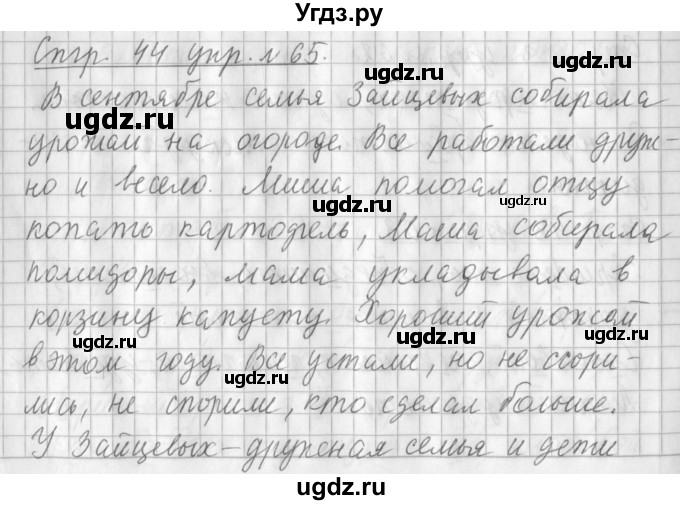 Угдз.ру
Стр. 44 упр. №65.
В сентябре семья Зайцевых собирала
урожай на огороде. Все работали друж-
но и весело. Миша помогал отцу
копать картофель, Маша собирала
помидоры, мама укладывала в
корзину капусту. Хороший урожай
в этом году. Все устали, но не ссори-
лись, не спорили, кто сделал больше.
У Зайцевых-дружная семья и дети
ugdz.ru
ugdz.ru
ugdz.ru
ugdz.ru
ugdz.ru
ugdz.ru
ugdz.ru
ugdz.ru
ugdz.ru